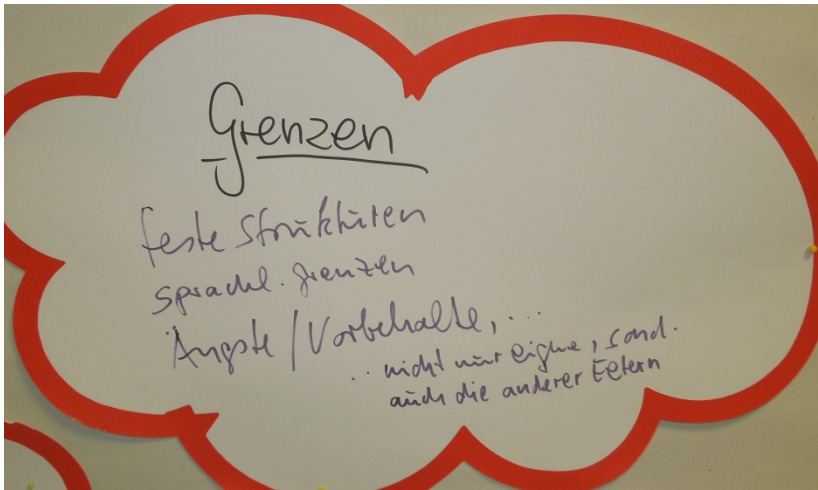 Grenzen
feste Strukturen
sprachl. grenzen
Ängste / Vorbehalte, ...
.. nicht nur eigne, sond.
auch die anderer Eltern